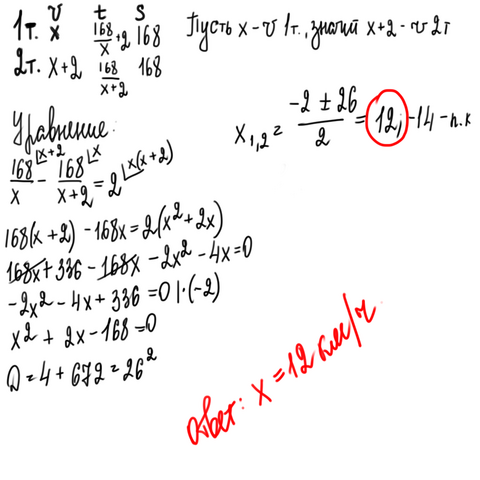 v t s
1т. x 168/x +2 168
2т. x+2 168/x+2 168
Пусть x - v 1т., значит x+2 - v 2т
Уравнение:
168/x |x+2 - 168/x+2 |x = 2 |x(x+2)
168(x+2) - 168x = 2(x² + 2x)
168x + 336 - 168x - 2x² - 4x = 0
-2x² - 4x + 336 = 0 | · (-2)
x² + 2x - 168 = 0
D = 4 + 672 = 26²
x₁,₂ = -2 ± 26/2 = 12; -14 - п.к
Ответ: x = 12 км/ч